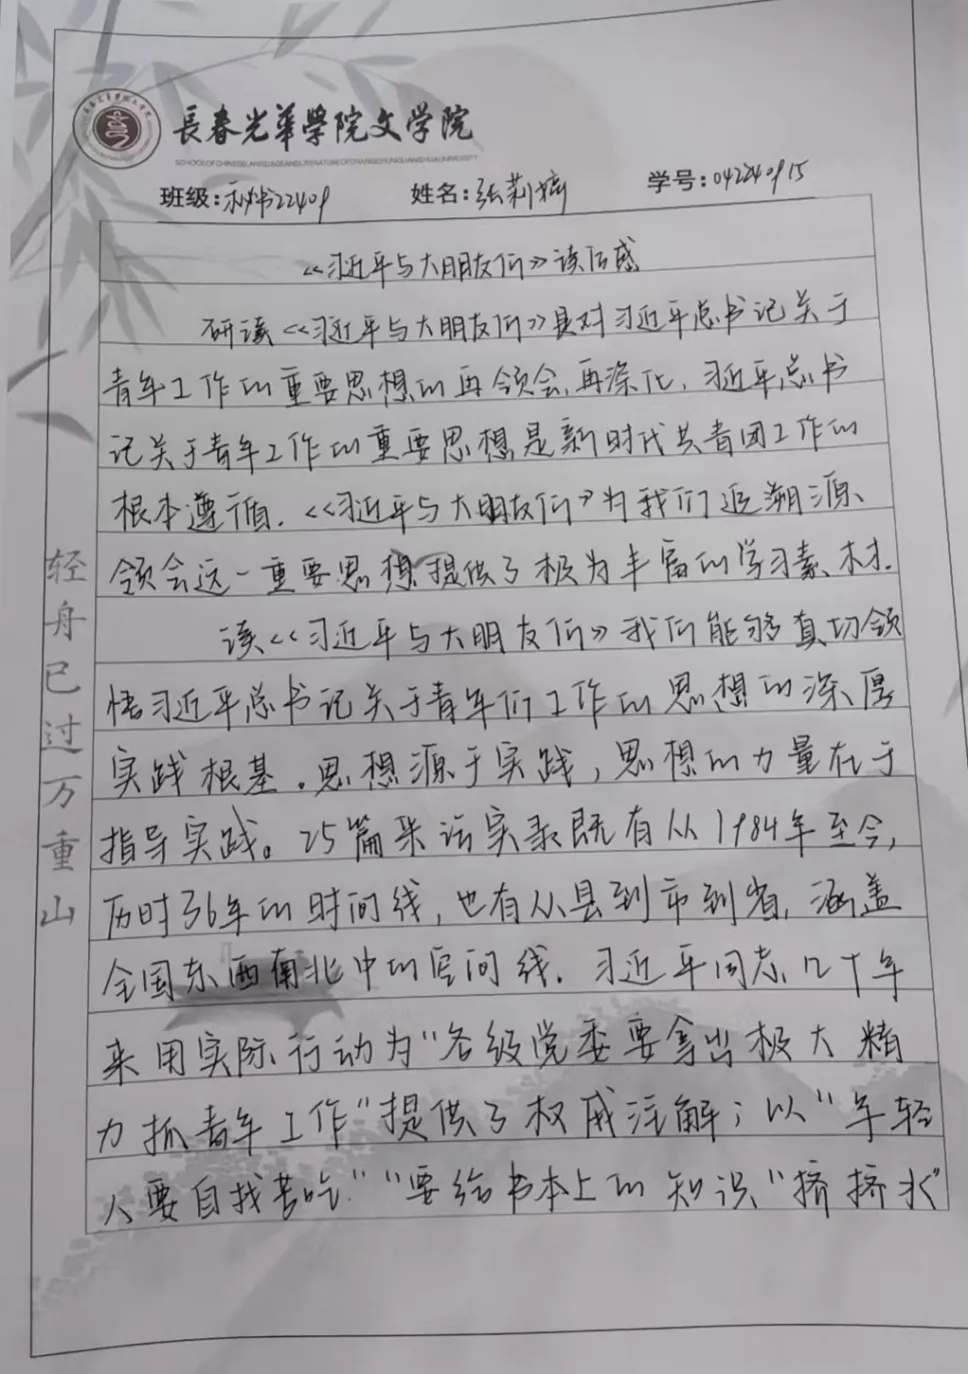 長春光華學院文学院
SCHOOL OF CHINESE LANGUAGE AND LITERATURE OF CHANGCHUN GUANGHUA UNIVERSITY
班级:秘书22409 姓名:张莉 学号:042240915
《习近平与大朋友们》读后感
研读《习近平与大朋友们》是对习近平总书记关于
青年工作的重要思想的再领会、再深化,习近平总书
记关于青年工作的重要思想是新时代共青团工作的
根本遵循.《习近平与大朋友们》为我们追溯源、
领会这一重要思想提供了极为丰富的学习素材.
读《习近平与大朋友们》我们能够真切领
悟习近平总书记关于青年们工作的思想的深厚
实践根基。思想源于实践,思想的力量在于
指导实践。25篇采访实录既有从1984年至今,
历时36年的时间线,也有从县到市到省,涵盖
全国东西南北中的空间线.习近平同志几十年
来用实际行动为"各级党委要拿出极大精
力抓青年工作"提供了权威注解;以"年轻
人要自找苦吃""要给书本上的知识"挤挤水"
轻舟已过万重山